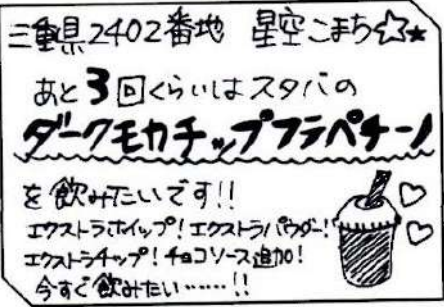 三重県2402番地 星空こまち☆★
あと3回くらいはスタバの
ダークモカチップフラペチーノ
を飲みたいです!!
エクストラホイップ!エクストラパウダー!
エクストラチップ!チョコソース追加!
今すぐ飲みたい……!!